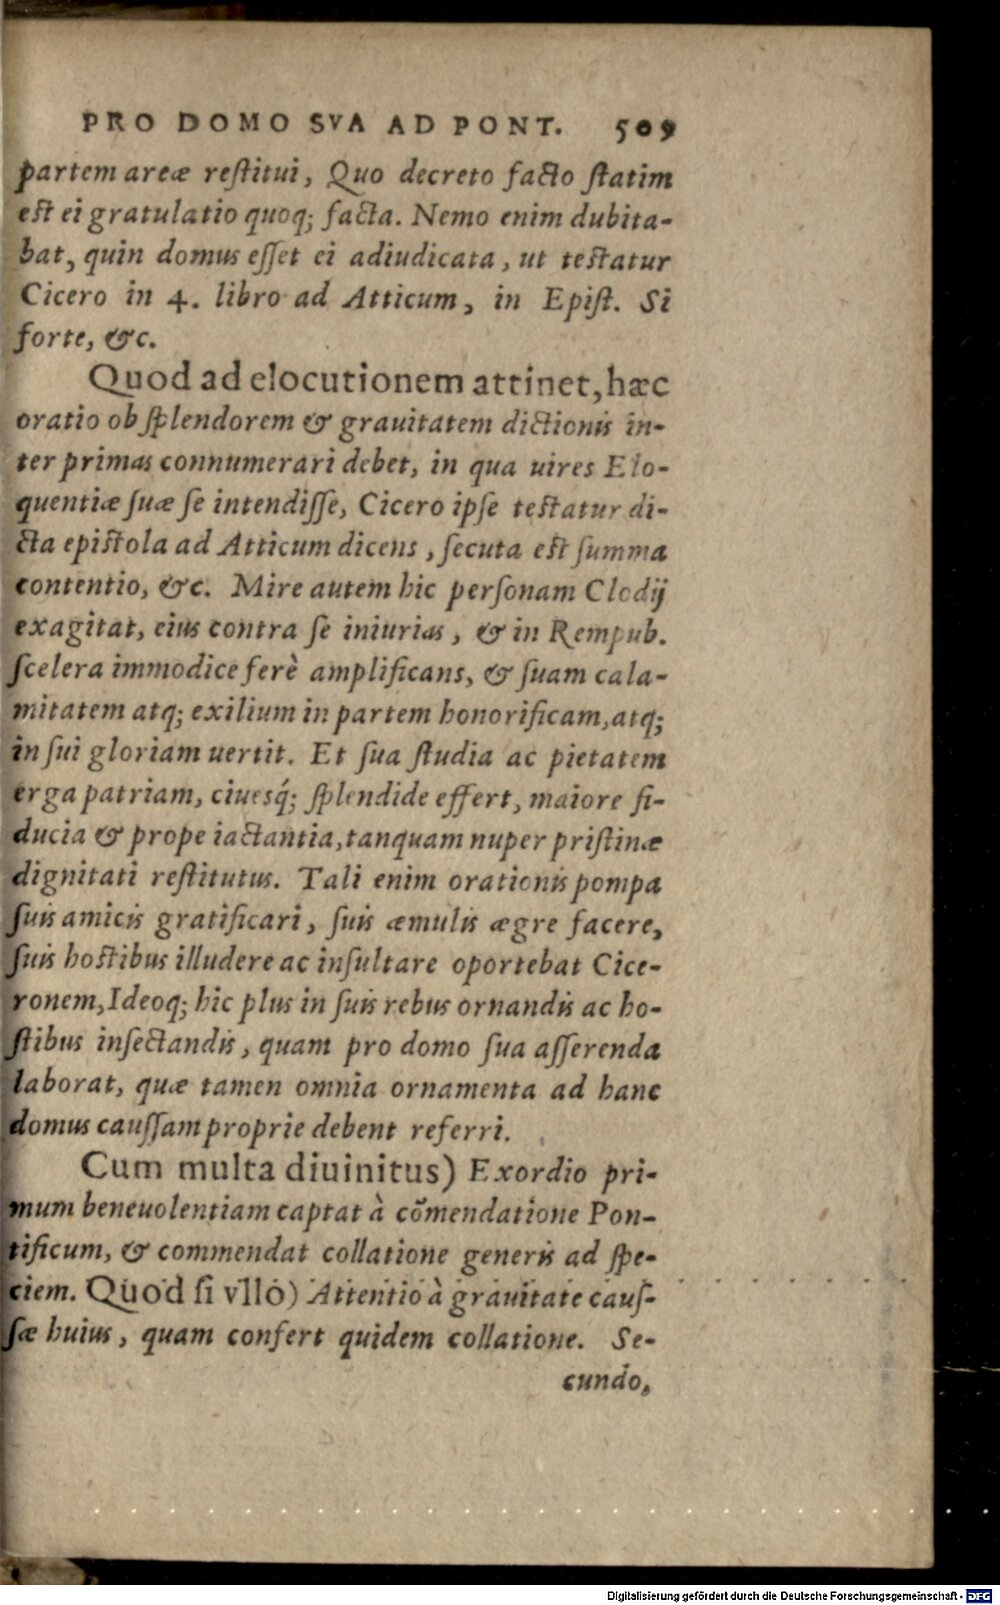 PRO DOMO SVA AD PONT. 509
partem areæ restitui, Quo decreto facto statim
est ei gratulatio quoq; facta. Nemo enim dubita-
bat, quin domus esset ei adiudicata, ut testatur
Cicero in 4. libro ad Atticum, in Epist. Si
forte, &c.
Quod ad elocutionem attinet, hæc
oratio ob splendorem & grauitatem dictionis in-
ter primas connumerari debet, in qua uires Elo-
quentiæ suæ se intendisse, Cicero ipse testatur di-
cta epistola ad Atticum dicens, secuta est summa
contentio, &c. Mire autem hic personam Clodij
exagitat, eius contra se iniurias, & in Rempub.
scelera immodice ferè amplificans, & suam cala-
mitatem atq; exilium in partem honorificam, atq;
in sui gloriam uertit. Et sua studia ac pietatem
erga patriam, ciuesq́; splendide effert, maiore fi-
ducia & prope iactantia, tanquam nuper pristinæ
dignitati restitutus. Tali enim orationis pompa
suis amicis gratificari, suis æmulis ægre facere,
suis hostibus illudere ac insultare oportebat Cice-
ronem, Ideoq; hic plus in suis rebus ornandis ac ho-
stibus insectandis, quam pro domo sua asserenda
laborat, quæ tamen omnia ornamenta ad hanc
domus caussam proprie debent referri.
Cum multa diuinitus) Exordio pri-
mum beneuolentiam captat à cōmendatione Pon-
tificum, & commendat collatione generis ad spe-
ciem. Quod si vllo) Attentio à grauitate caus-
sæ huius, quam confert quidem collatione. Se-
cundo,
Digitalisierung gefördert durch die Deutsche Forschungsgemeinschaft - DFG